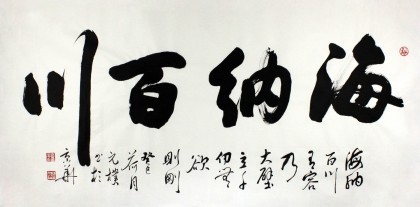 海纳百川
海纳
百川
有容
乃
大壁
立千
仞無
欲
则刚
癸巳
荷月
元樸
书於
京華